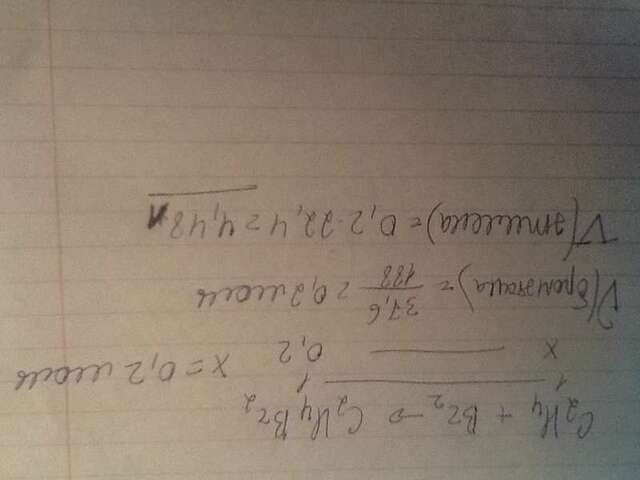 C2H4 + Br2 → C2H4Br2
1 1
x 0,2 x = 0,2 моль
V(бромэтана) = 37,6/188 = 0,2 моль
V(этилена) = 0,2 · 22,4 = 4,48 л